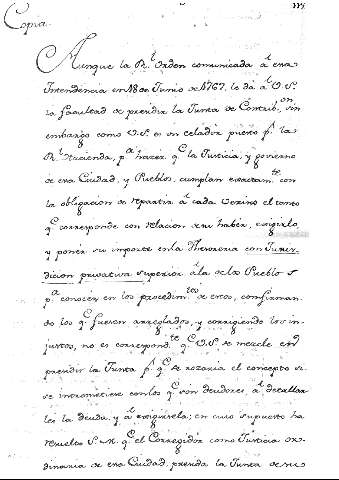 Copia.
Aunque la Rl. Orden comunicada á esa
Intendencia en 18 de Junio de 1767, le dá á V.S.
la facultad de presidir la Junta de Contribon. sin
embargo como V.S. es un celador puesto pr. la
Rl. Hacienda, pa. hazer qe. la Justicia, y govierno
de esa Ciudad, y Pueblos, cumplan exactamte. con
la obligacion de repartir á cada Vezino el tanto
qe. corresponde con relacion a su haber, exigirlo,
y poner su importe en la Thesoreria con Juris-
dicion privativa superior á la de los Pueblos
pa. conocer en los procedimtos. de estos, confirman-
do los qe. fuesen arreglados, y corrigiendo los in-
justos, no es correspondte. qe. V.S. se mezcle en
presidir la Junta pr. qe. se rozaria el concepto si
se intrometiese con los qe. son deudores, á detallar
les la deuda, y á exigirsela; en cuio supuesto ha
resuelto S.M. qe. el Corregidor como Justicia or-
dinaria de esa Ciudad, presida la Junta de su